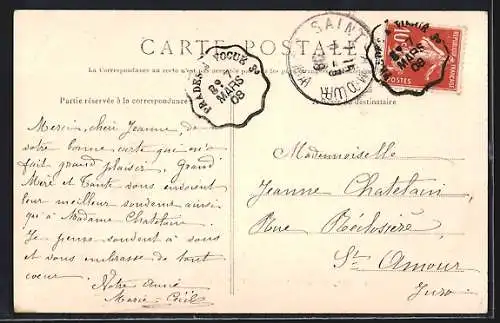 CARTE POSTALE
La Correspondance au recto n'est pas acceptée par tous les pays étrangers
Partie réservée à la correspondance
du destinataire
PRADES À VOGUÉ
7
MARS
08
SAINT-AMOUR
PRADES À VOGUÉ
7
MARS
08
RÉPUBLIQUE FRANÇAISE
10
POSTES
Merci, chère Jeanne, de
votre bonne carte qui m'a
fait grand plaisir. Grand
Mère et Tante vous envoient
leur meilleur souvenir ainsi
qu'à Madame Chatelain.
Je pense souvent à vous
et vous embrasse de tout
coeur.
Votre amie
Marie-Cécile
Mademoiselle
Jeanne Chatelain,
Rue
St Amour
Jura